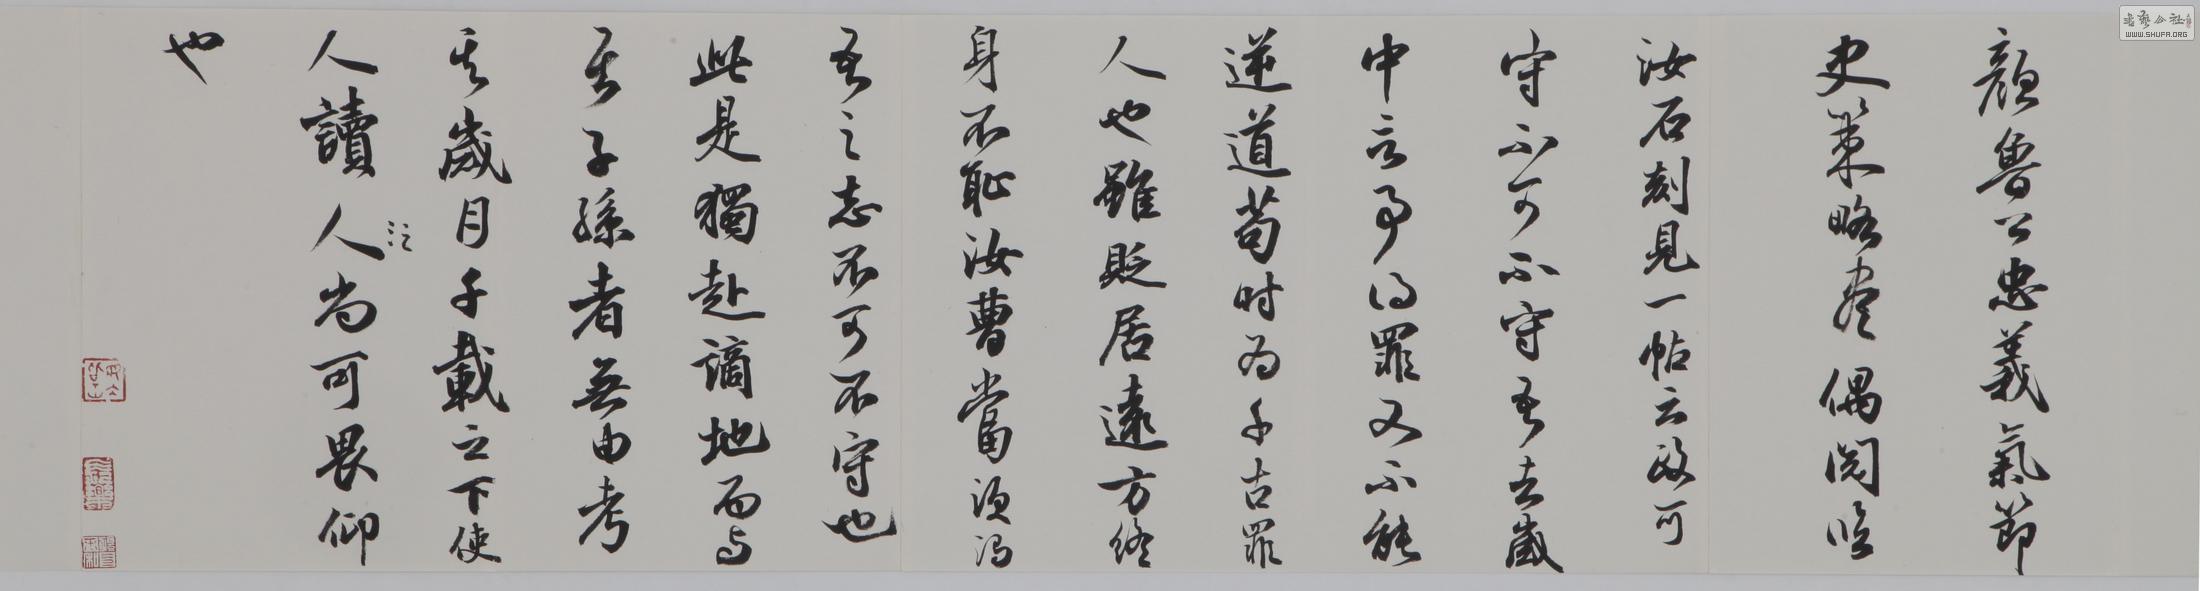 顏魯公忠義氣節
史策略盡偶閱臨
汝石刻見一帖云政可
守不可不守吾去歲
中言事得罪又不能
逆道苟时為千古罪
人也雖貶居遠方終
身不恥汝曹當須謂
吾之志不可不守也
此是獨赴謫地而与
其子孫者無由考
其歲月千載之下使
人讀人尚可畏仰
也
WWW.SHUFA.ORG